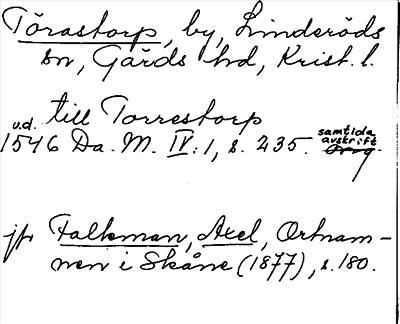 Törastorp, by, Linderöds
sn, Gärds hd, Krist. l.
till Torrestorp
u.d.
1546 Da. M. IV:1, s. 235. samtida
avskrift
Orig.
jfr Falkman, Axel, Ortnam-
nen i Skåne (1877), s. 180.